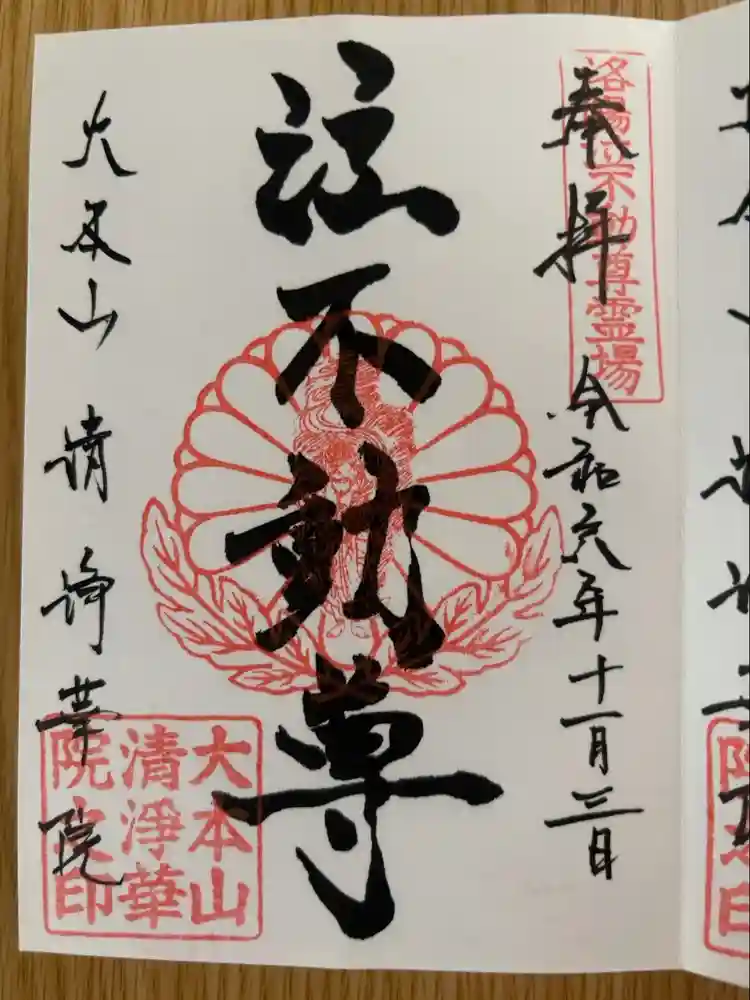 奉拝
洛陽泣不動尊霊場
令和六年十一月三日
泣不動尊
大本山 清浄華院
大本山
清淨華
院之印